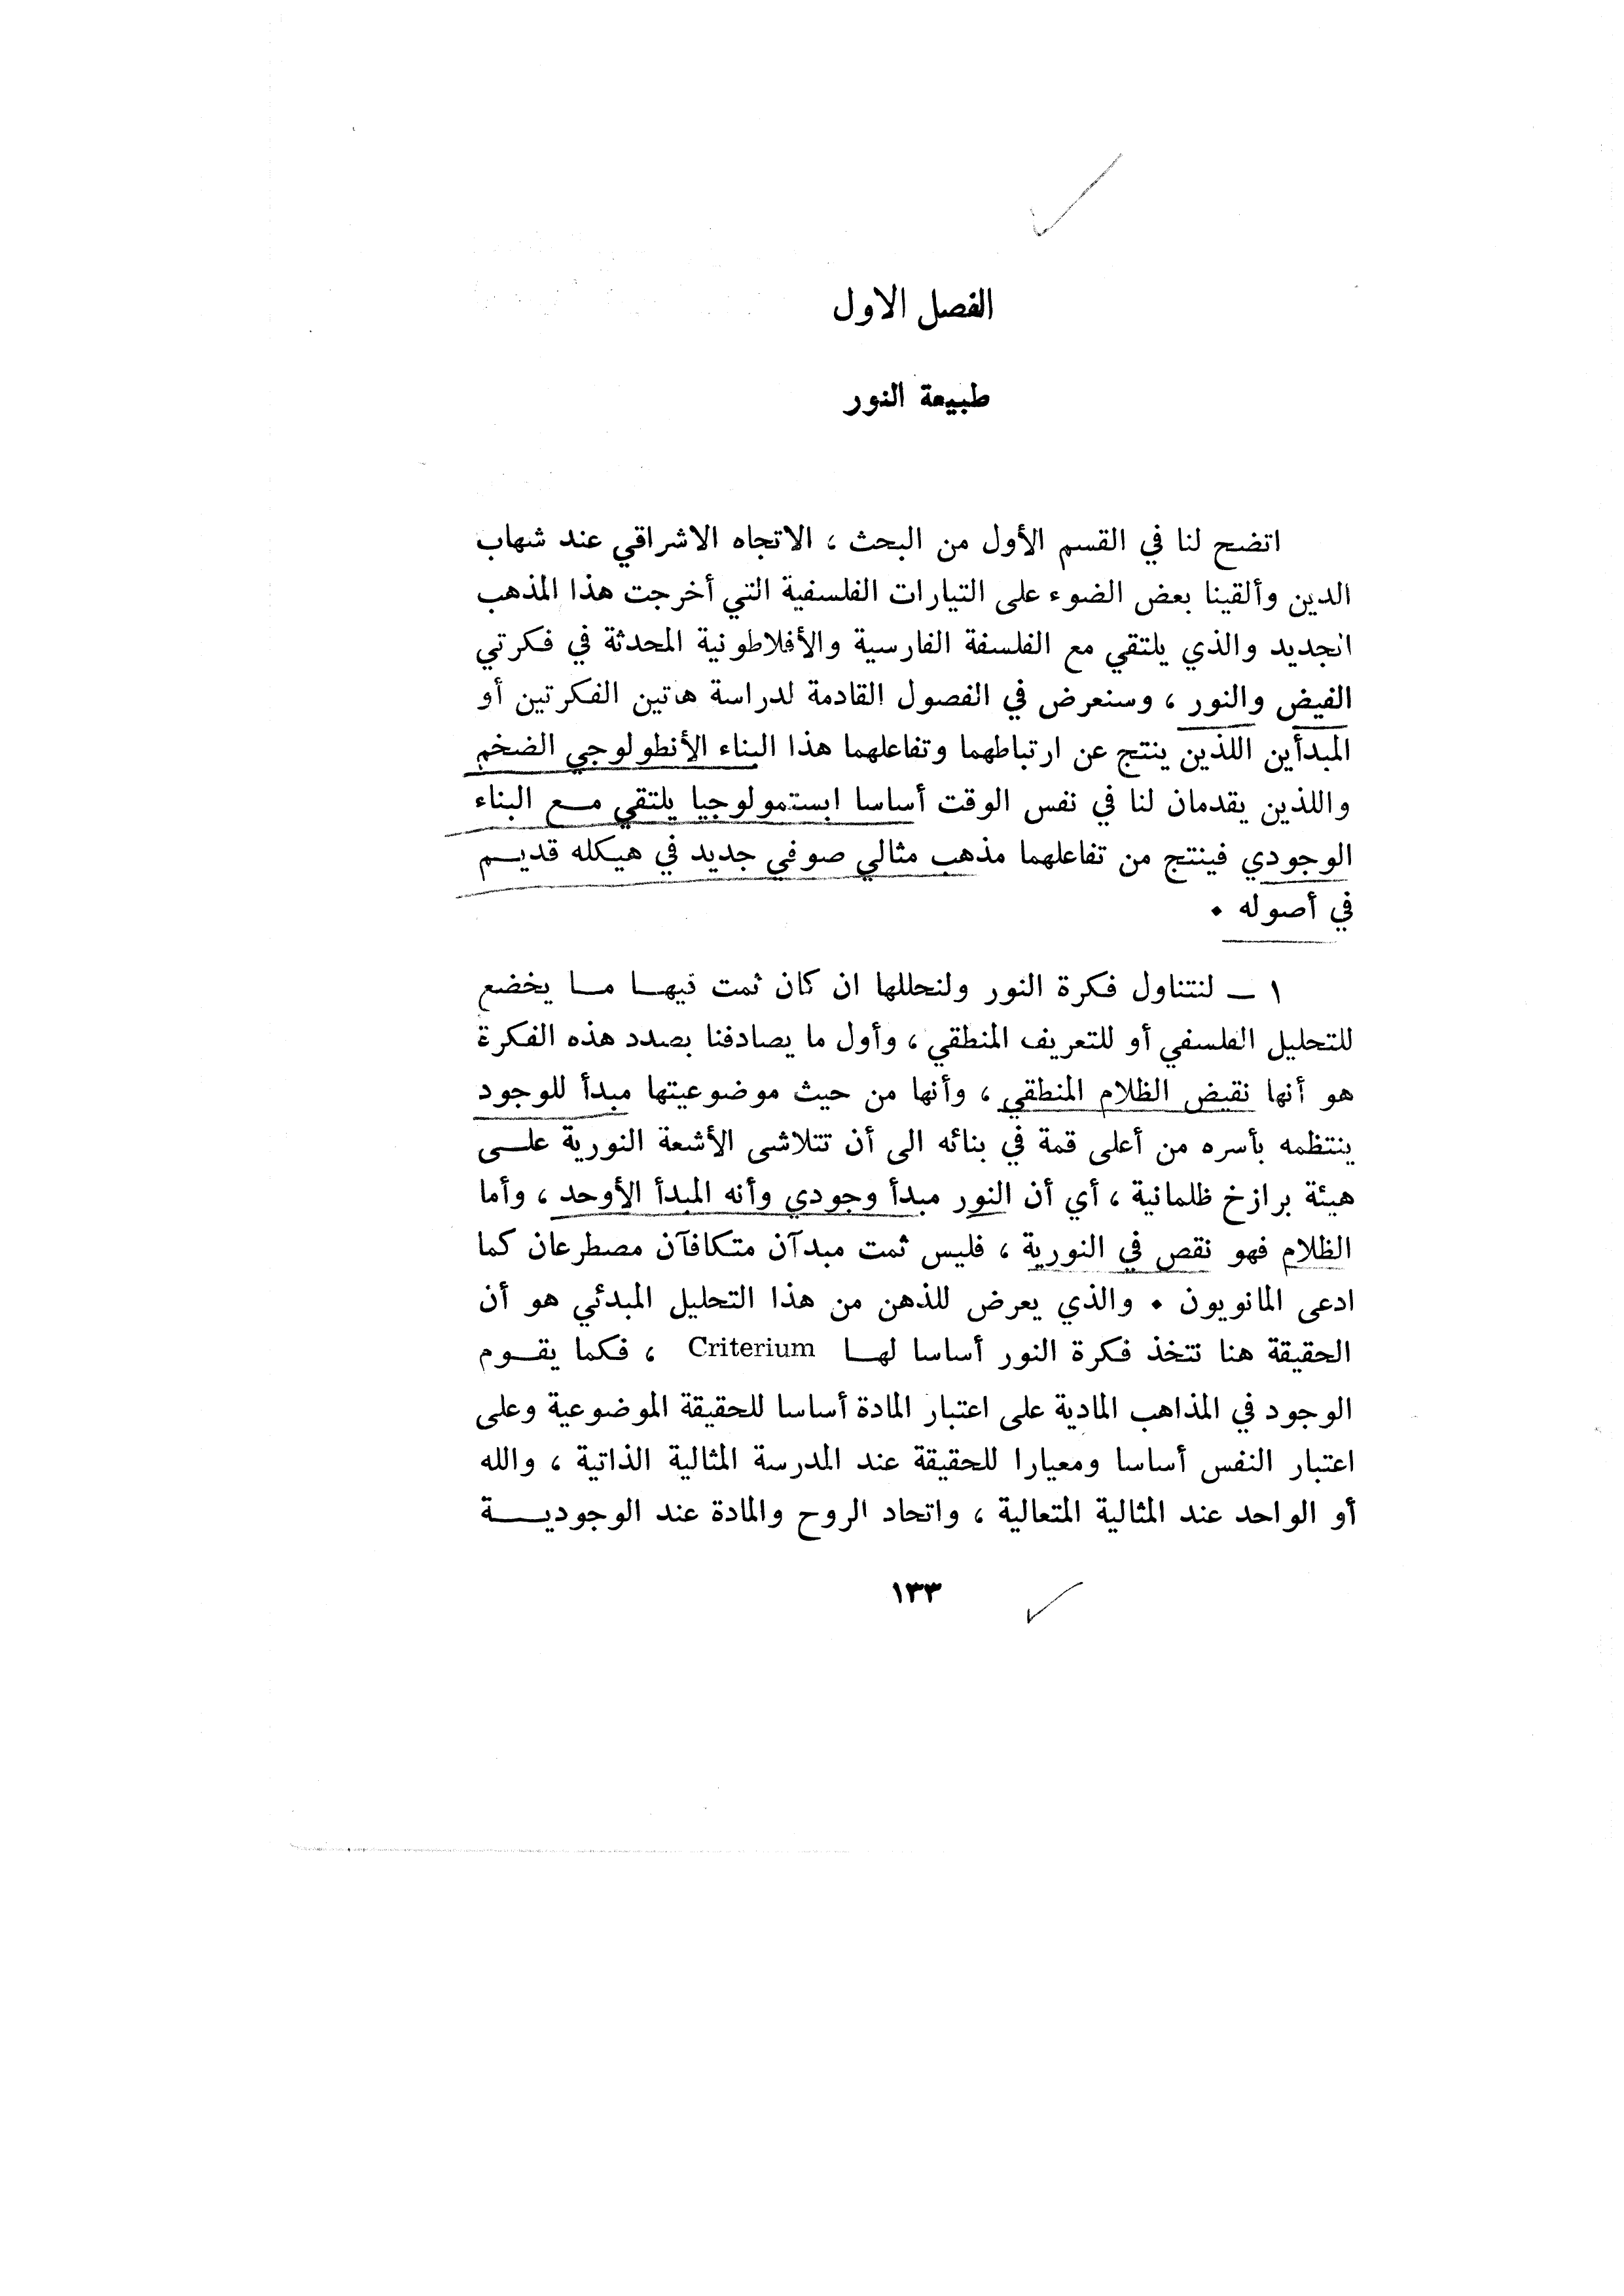 الفصل الاول
طبيعة النور
اتضح لنا في القسم الأول من البحث ، الاتجاه الاشراقي عند شهاب
الدين وألقينا بعض الضوء على التيارات الفلسفية التي أخرجت هذا المذهب
الجديد والذي يلتقي مع الفلسفة الفارسية والأفلاطونية المحدثة في فكرتي
الفيض والنور ، وسنعرض في الفصول القادمة لدراسة هاتين الفكرتين أو
المبدأين اللذين ينتج عن ارتباطهما وتفاعلهما هذا البناء الأنطولوجي الضخم
واللذين يقدمان لنا في نفس الوقت أساسا ابستمولوجيا يلتقي مـع البناء
الوجودي فينتج من تفاعلهما مذهب مثالي صوفي جديد في هيكله قديـم
في أصوله •
١ ـ لنتناول فكرة النور ولنحللها ان كان ثمت فيهـا مـا يخضع
للتحليل الفلسفي أو للتعريف المنطقي ، وأول ما يصادفنا بصدد هذه الفكرة
هو أنها نقيض الظلام المنطقي ، وأنها من حيث موضوعيتها مبدأ للوجود
ينتظمه بأسره من أعلى قمة في بنائه الى أن تتلاشى الأشعة النورية علـى
هيئة برازخ ظلمانية ، أي أن النور مبدأ وجودي وأنه المبدأ الأوحد ، وأما
الظلام فهو نقص في النورية ، فليس ثمت مبدآن متكافآن مصطرعان كما
ادعى المانويون • والذي يعرض للذهن من هذا التحليل المبدئي هو أن
الحقيقة هنا تتخذ فكرة النور أساسا لهـا Criterium ، فكما يقـوم
الوجود في المذاهب المادية على اعتبار المادة أساسا للحقيقة الموضوعية وعلى
اعتبار النفس أساسا ومعيارا للحقيقة عند المدرسة المثالية الذاتية ، والله
أو الواحد عند المثالية المتعالية ، واتحاد الروح والمادة عند الوجوديـــة
١٣٣